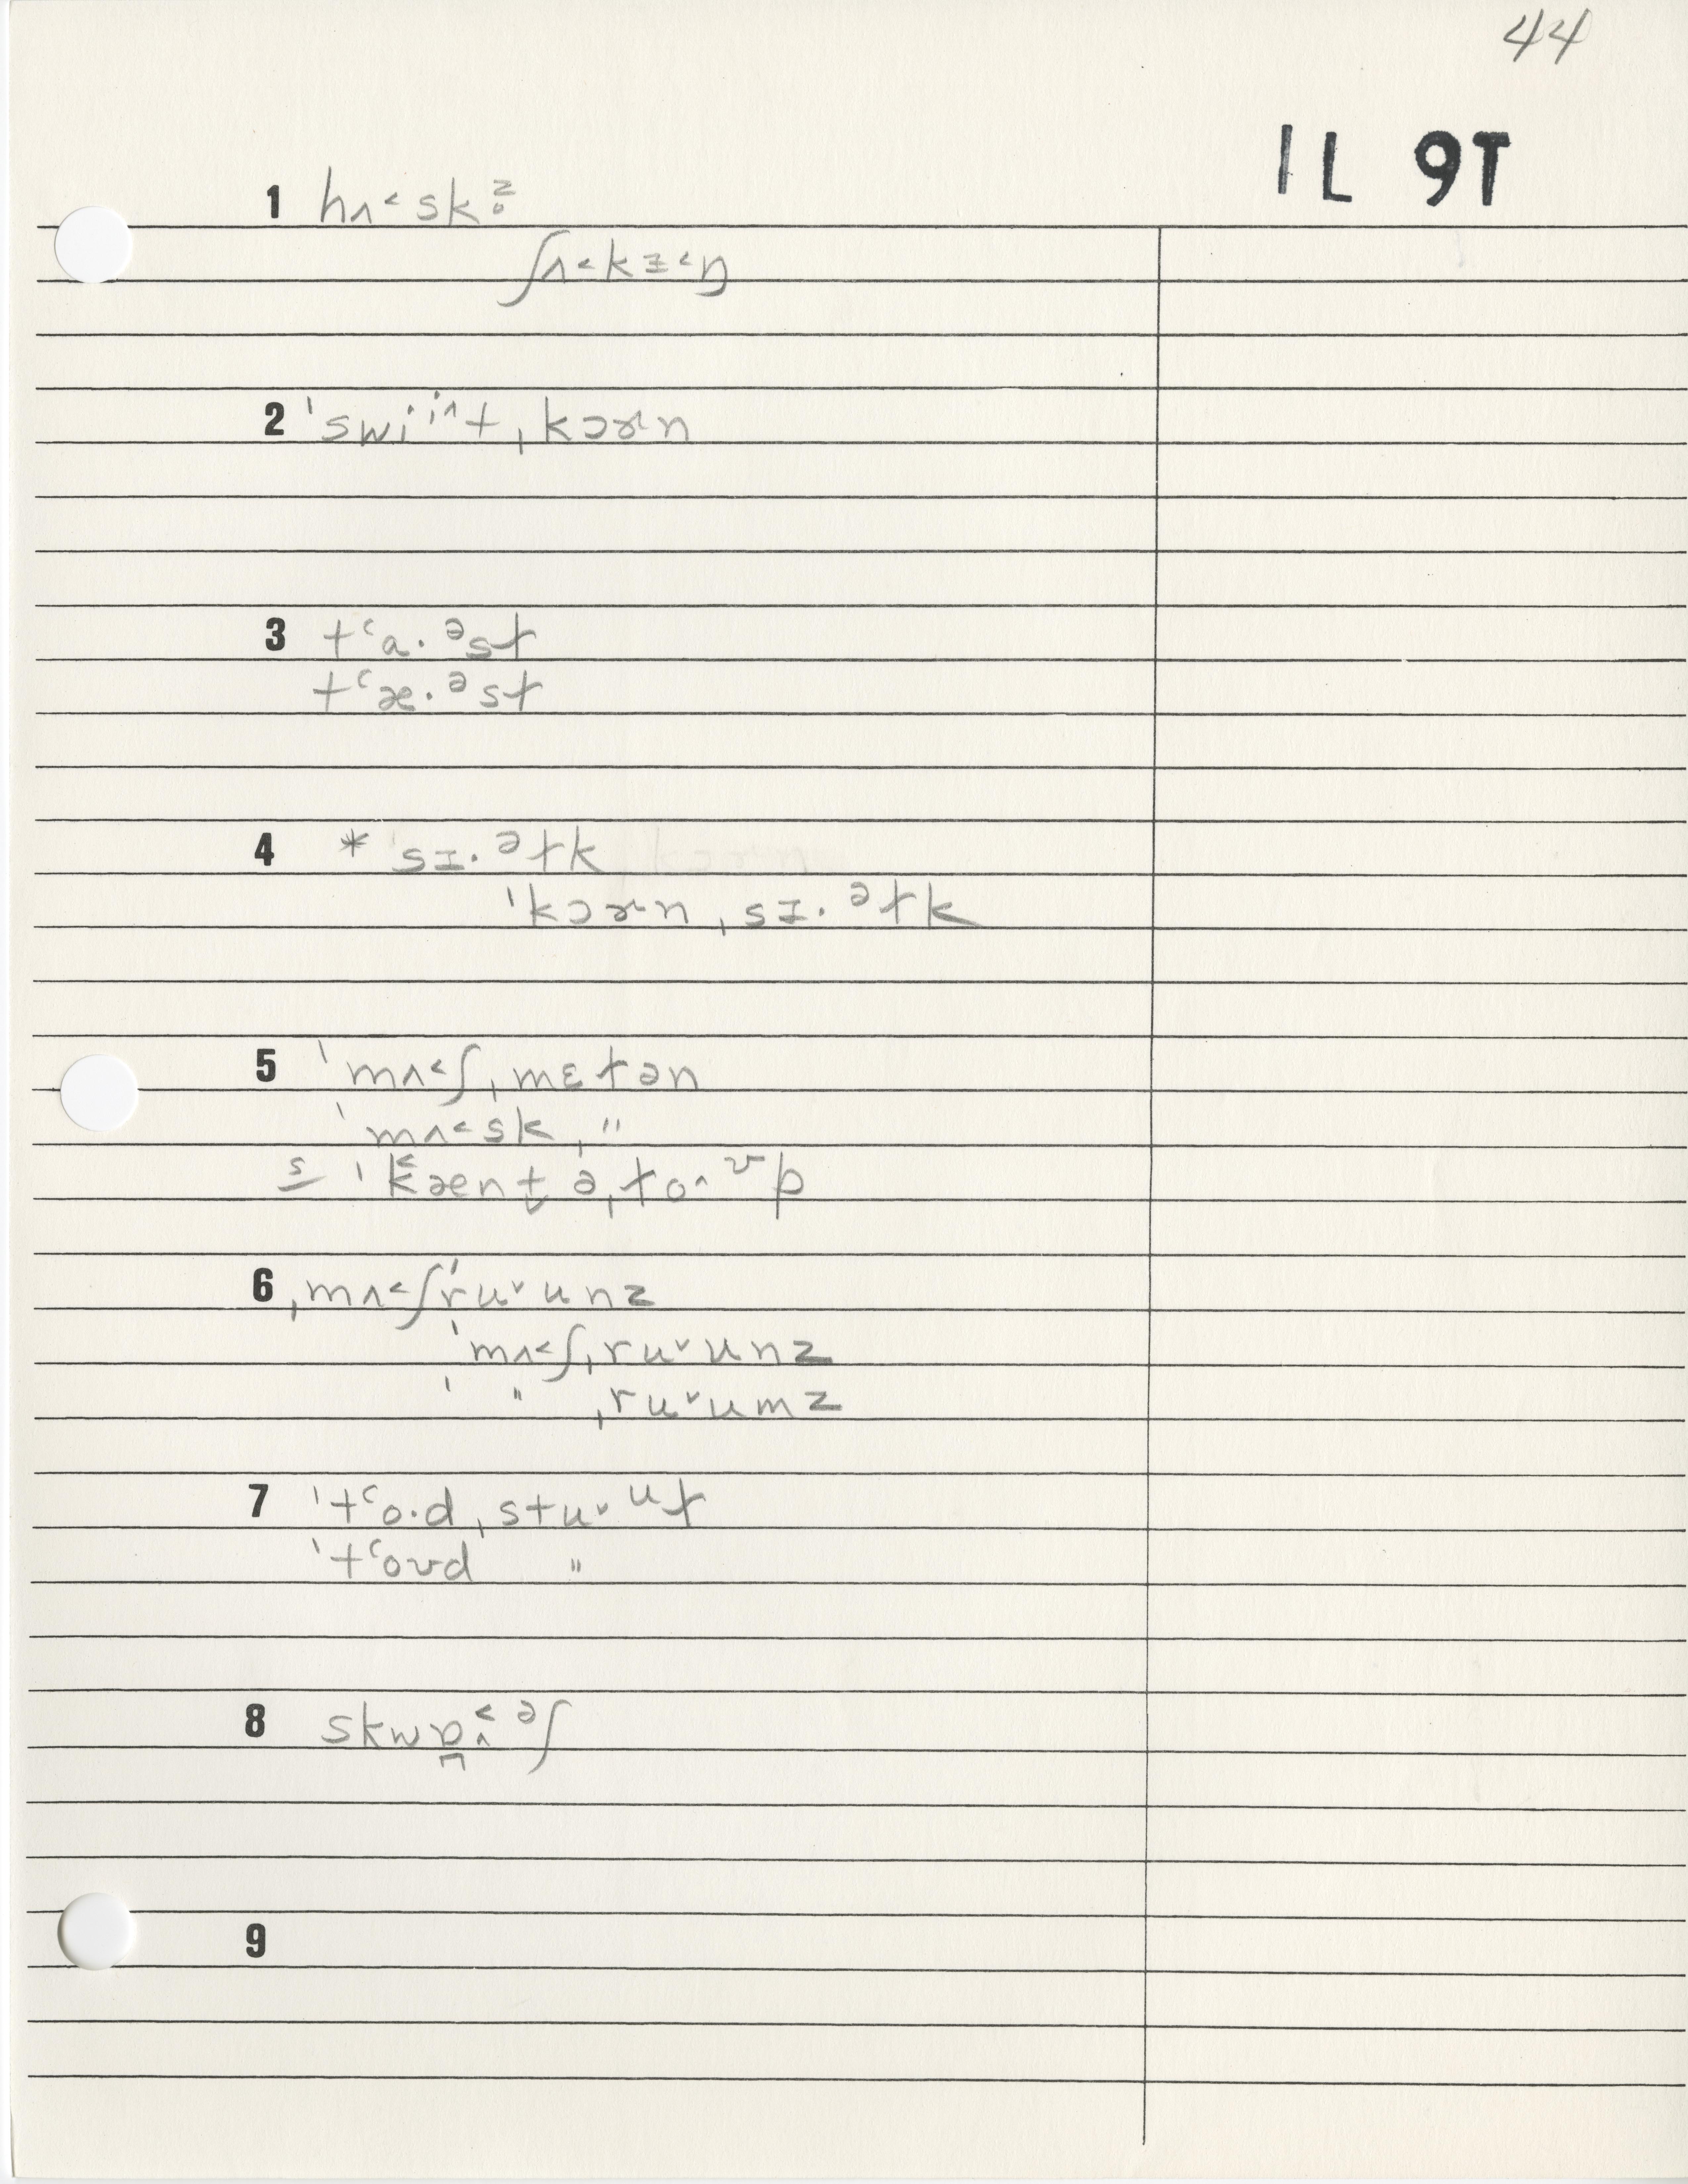 44
1L 9T
1 hʌ˂skᶻ̥
ʃʌ˂kɪ˂ŋ
2 ˈswi·iˆt ˌkɔɚn
3 tʿa·ᵊst
tʿæ·ᵊst
4 * sɪ·ᵊtk
ˈkɔɚn ˌsɪ·ᵊtk
5 ˈmʌ˂ʃ ˌmɛtən
ˈmʌ˂sk ˌ"
s ˈk˂ænt̬ə ˌto^ᶷp
6 ˌmʌ˂ʃˈru˅unz
ˈmʌ˂ʃ ˌru˅unz
ˈ " ˌru˅umz
7 ˈtʿo·d ˌstu˅ᵘt
ˈtʿoʊd "
8 skwɒ̪˂^ᵊʃ
9